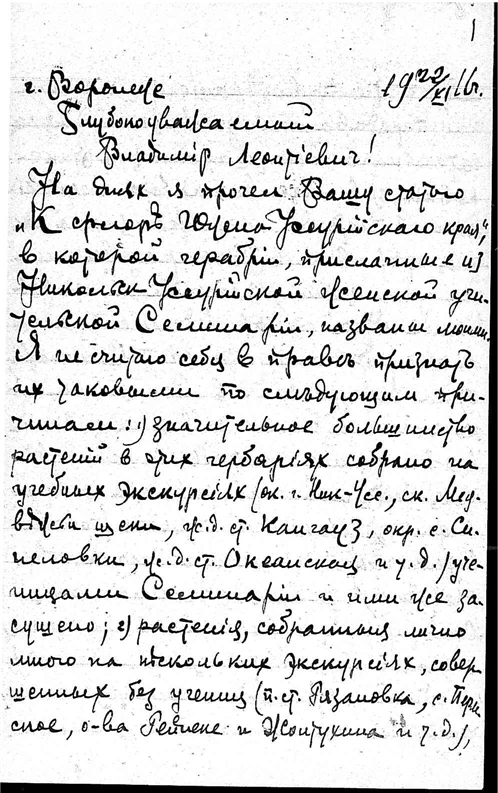 1
г. Воронеж 19 22/XI 16г.
Глубокоуважаемый
Владимір Леонтіевич!
На днях я прочел Вашу статью
„К флорѣ Южно-Уссурійскаго края",
в которой гербаріи, присланные из
Никольск-Уссурійской женской учи-
тельской Семинаріи, названы моими.
Я не считаю себя в правѣ признать
их таковыми по слѣдующим при-
чинам: 1) значительное большинство
растеній в этих гербаріях собрано на
учебных экскурсіях (ок. г. Ник-Усс., ск. Мед-
вѣжьи щеки, ж.д. ст. Кангауз, окр. с. Си-
неловки, ж.д. ст. Океанская и т.д.) уче-
ницами Семинаріи и ими же за-
сушено; 2) растенія, собранныя лично
мною на нѣскольких экскурсіях, совер-
шенных без учениц (п. ст. Рязановка, с.
сное, о-ва Рейнеке и Желтухина и т.д.),